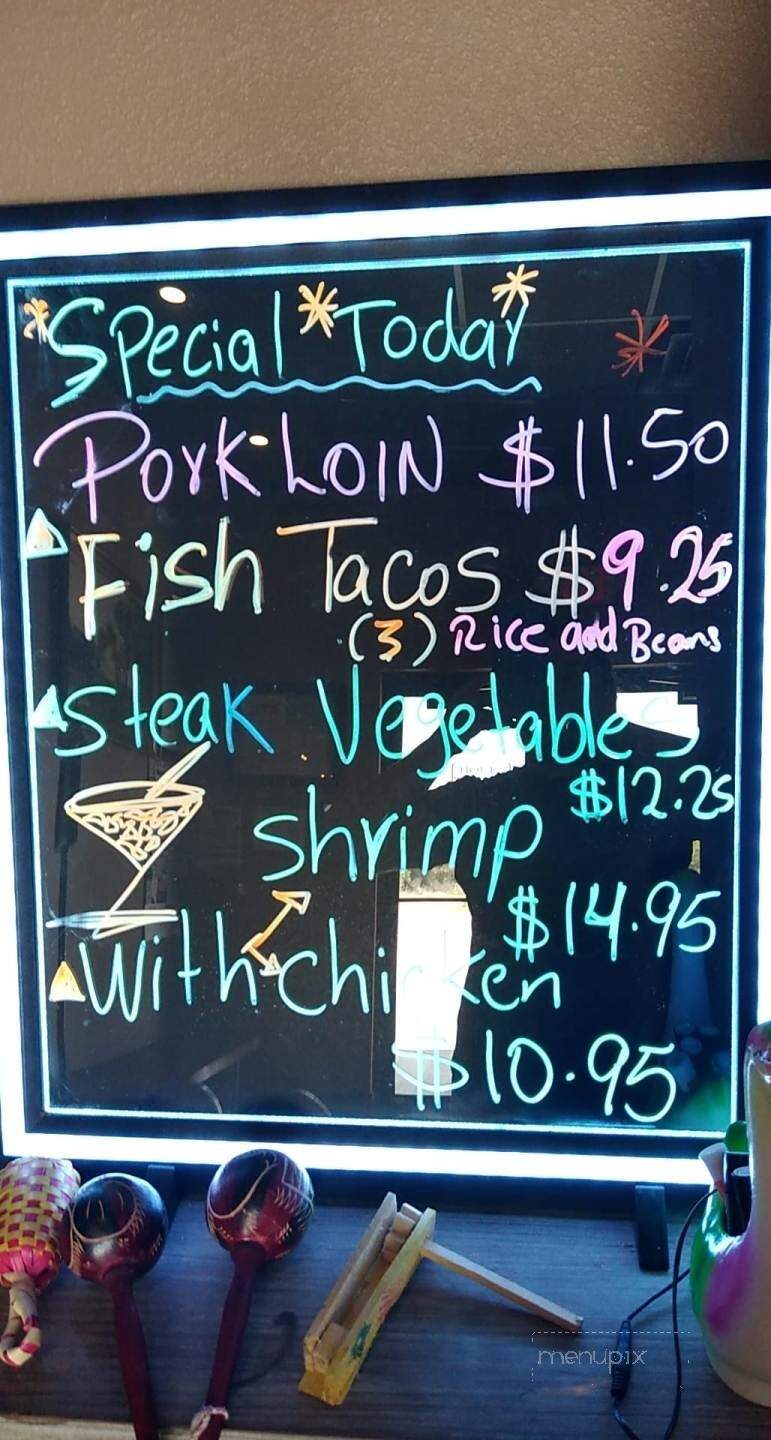 Special Today
Pork Loin $11.50
Fish Tacos $9.25
(3) Rice and Beans
Steak Vegetables
$12.25
shrimp
$14.95
With chicken
$10.95
menupix